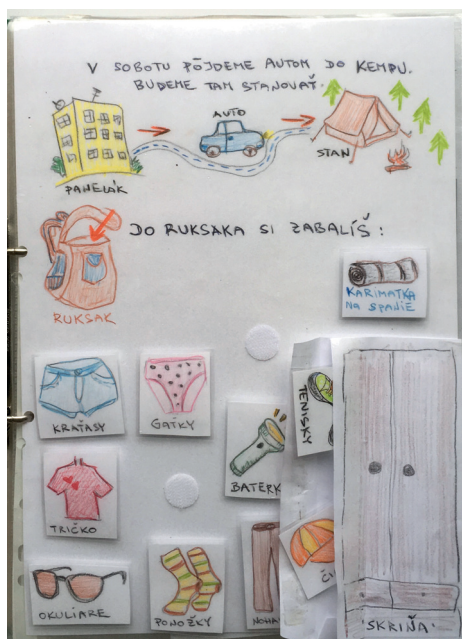 V SOBOTU PÔJDEME AUTOM DO KEMPU.
BUDEME TAM STANOVAŤ.
AUTO
STAN
PANELÁK
DO RUKSAKA SI ZABALÍŠ:
RUKSAK
KARIMATKA
NA SPANIE
TENISKY
KRAŤASY
GAŤKY
BATERK
TRIČKO
OKULIARE
PONOŽKY
NOHA
'SKRIŇA'